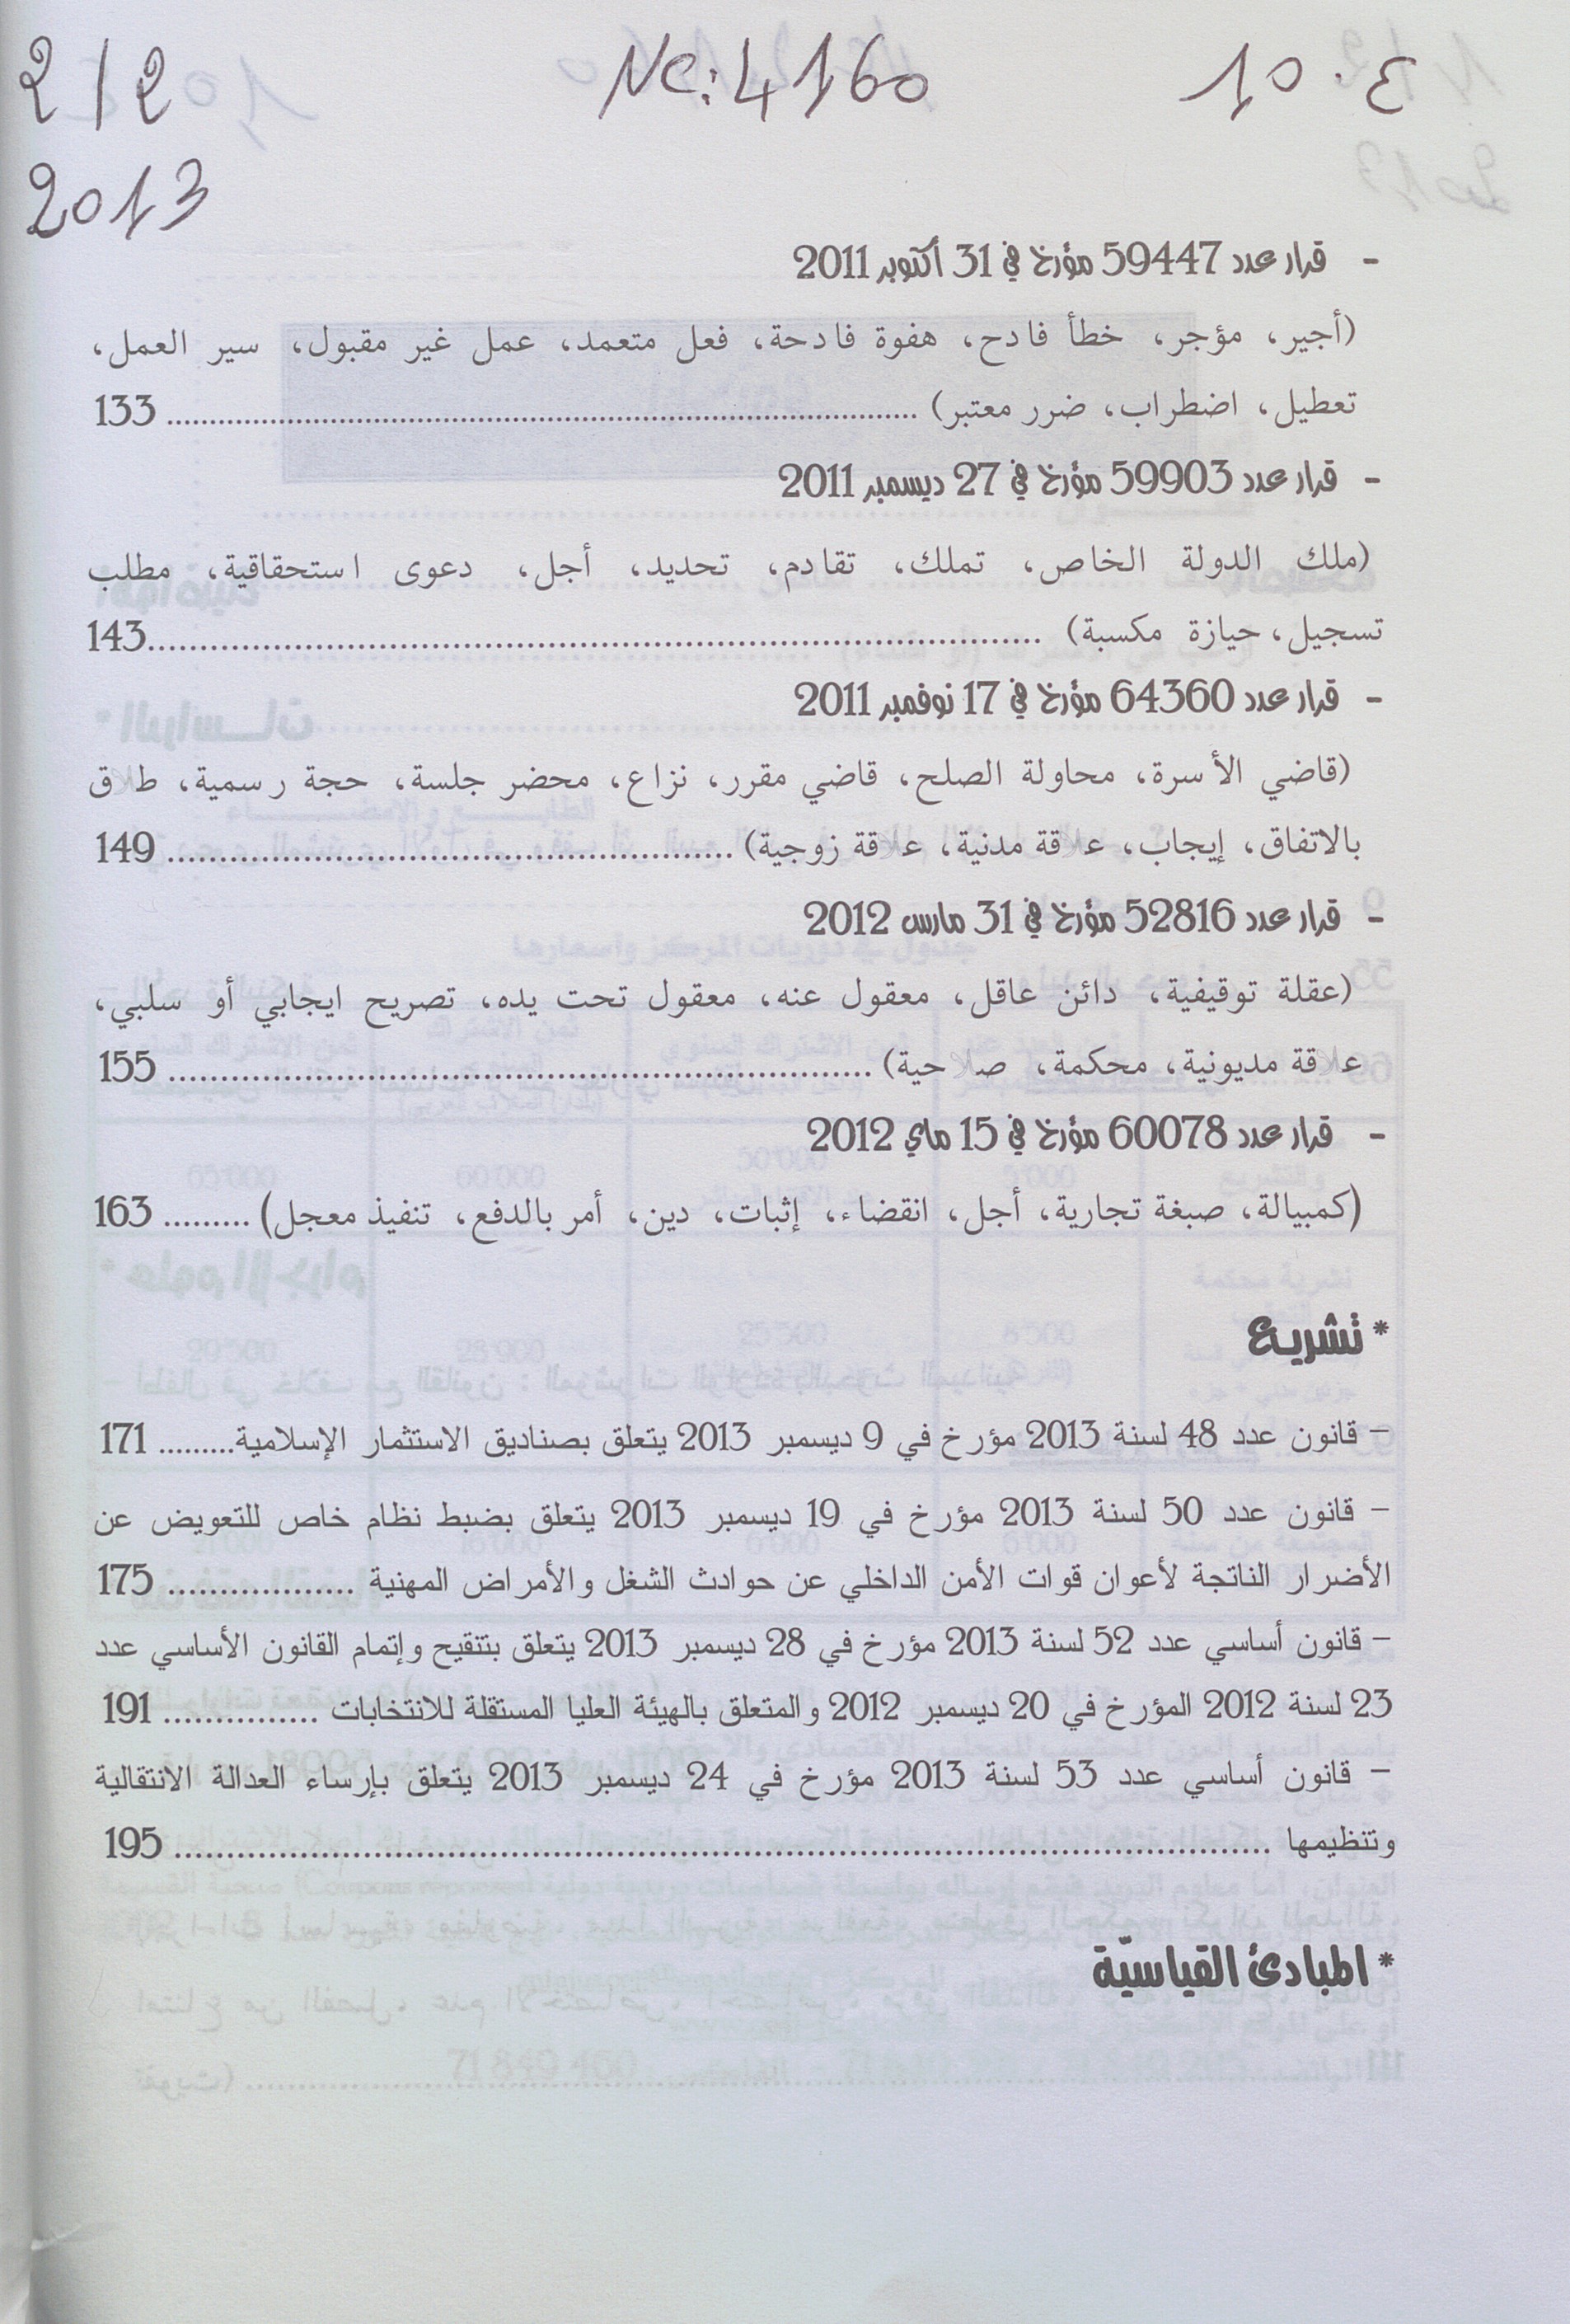 2/2 NC: 4160 10.ع
2013
- قرار عدد 59447 مؤرخ في 31 أكتوبر 2011
(أجير، مؤجر، خطأ فادح، هفوة فادحة، فعل متعمد، عمل غير مقبول، سير العمل،
تعطيل، اضطراب، ضرر معتبر) ........................ 133
- قرار عدد 59903 مؤرخ في 27 ديسمبر 2011
(ملك الدولة الخاص، تملك، تقادم، تحديد، أجل، دعوى استحقاقية، مطلب
تسجيل، حيازة مكسبة) ........................ 143
- قرار عدد 64360 مؤرخ في 17 نوفمبر 2011
(قاضي الأسرة، محاولة الصلح، قاضي مقرر، نزاع، محضر جلسة، حجة رسمية، طلاق
بالاتفاق، إيجاب، علاقة مدنية، علاقة زوجية) ........................ 149
- قرار عدد 52816 مؤرخ في 31 مارس 2012
(عقلة توقيفية، دائن عاقل، معقول عنه، معقول تحت يده، تصريح ايجابي أو سلبي،
علاقة مديونية، محكمة، صلاحية) ........................ 155
- قرار عدد 60078 مؤرخ في 15 ماي 2012
(كمبيالة، صبغة تجارية، أجل، انقضاء، إثبات، دين، أمر بالدفع، تنفيذ معجل) ......... 163
* تشريع
– قانون عدد 48 لسنة 2013 مؤرخ في 9 ديسمبر 2013 يتعلق بصناديق الاستثمار الإسلامية......... 171
– قانون عدد 50 لسنة 2013 مؤرخ في 19 ديسمبر 2013 يتعلق بضبط نظام خاص للتعويض عن
الأضرار الناتجة لأعوان قوات الأمن الداخلي عن حوادث الشغل والأمراض المهنية .................. 175
– قانون أساسي عدد 52 لسنة 2013 مؤرخ في 28 ديسمبر 2013 يتعلق بتنقيح وإتمام القانون الأساسي عدد
23 لسنة 2012 المؤرخ في 20 ديسمبر 2012 والمتعلق بالهيئة العليا المستقلة للانتخابات ............... 191
– قانون أساسي عدد 53 لسنة 2013 مؤرخ في 24 ديسمبر 2013 يتعلق بإرساء العدالة الانتقالية
وتنظيمها ........................ 195
* المبادئ القياسيّة